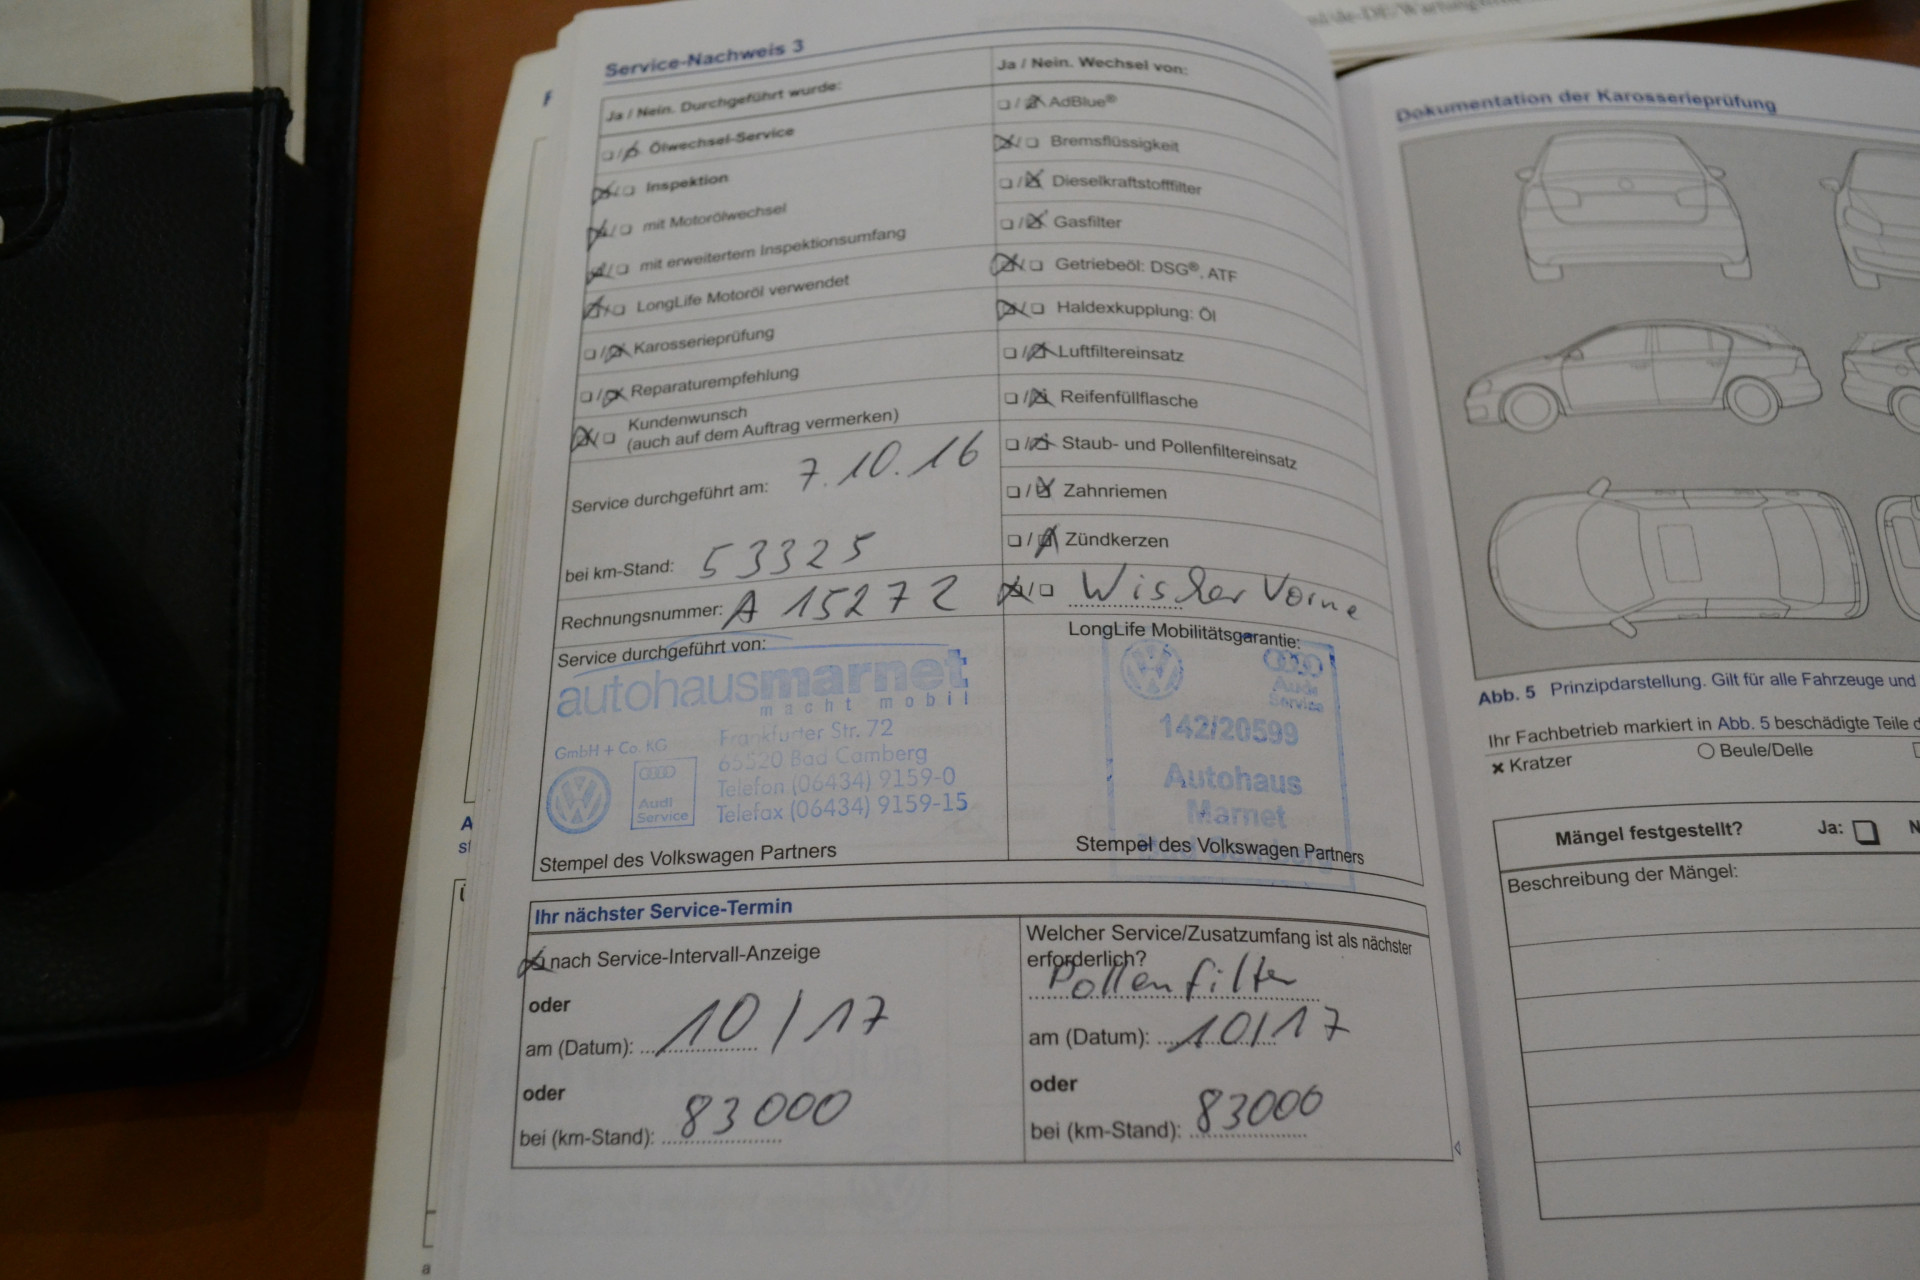 Service-Nachweis 3
Ja / Nein. Durchgeführt wurde:
☐/☒ Ölwechsel-Service
☒/☐ Inspektion
☒/☐ mit Motorölwechsel
☒/☐ mit erweitertem Inspektionsumfang
☒/☐ LongLife Motoröl verwendet
☐/☒ Karosserieprüfung
☐/☒ Reparaturempfehlung
☒/☐ Kundenwunsch
(auch auf dem Auftrag vermerken)
Service durchgeführt am: 7.10.16
bei km-Stand: 53325
Rechnungsnummer: A 15272
Service durchgeführt von:
autohausmarnet
macht mobil
GmbH + Co. KG
Frankfurter Str. 72
65520 Bad Camberg
Telefon (06434) 9159-0
Telefax (06434) 9159-15
Audi
Service
Stempel des Volkswagen Partners
Ja / Nein. Wechsel von:
☐/☒ AdBlue®
☒/☐ Bremsflüssigkeit
☐/☒ Dieselkraftstofffilter
☐/☒ Gasfilter
☒/☐ Getriebeöl: DSG®, ATF
☒/☐ Haldexkupplung: Öl
☐/☒ Luftfiltereinsatz
☐/☒ Reifenfüllflasche
☐/☒ Staub- und Pollenfiltereinsatz
☐/☒ Zahnriemen
☐/☒ Zündkerzen
☒/☐ Wischer Vorne
LongLife Mobilitätsgarantie:
Audi
Service
142/20599
Autohaus
Marnet
Bad Camberg
Stempel des Volkswagen Partners
Ihr nächster Service-Termin
☒ nach Service-Intervall-Anzeige
oder
am (Datum): 10/17
oder
bei (km-Stand): 83000
Welcher Service/Zusatzumfang ist als nächster
erforderlich?
Pollenfilter
am (Datum): 10/17
oder
bei (km-Stand): 83000
Dokumentation der Karosserieprüfung
Abb. 5 Prinzipdarstellung. Gilt für alle Fahrzeuge und
Ihr Fachbetrieb markiert in Abb. 5 beschädigte Teile
× Kratzer ○ Beule/Delle
Mängel festgestellt? Ja: ☐ N
Beschreibung der Mängel: